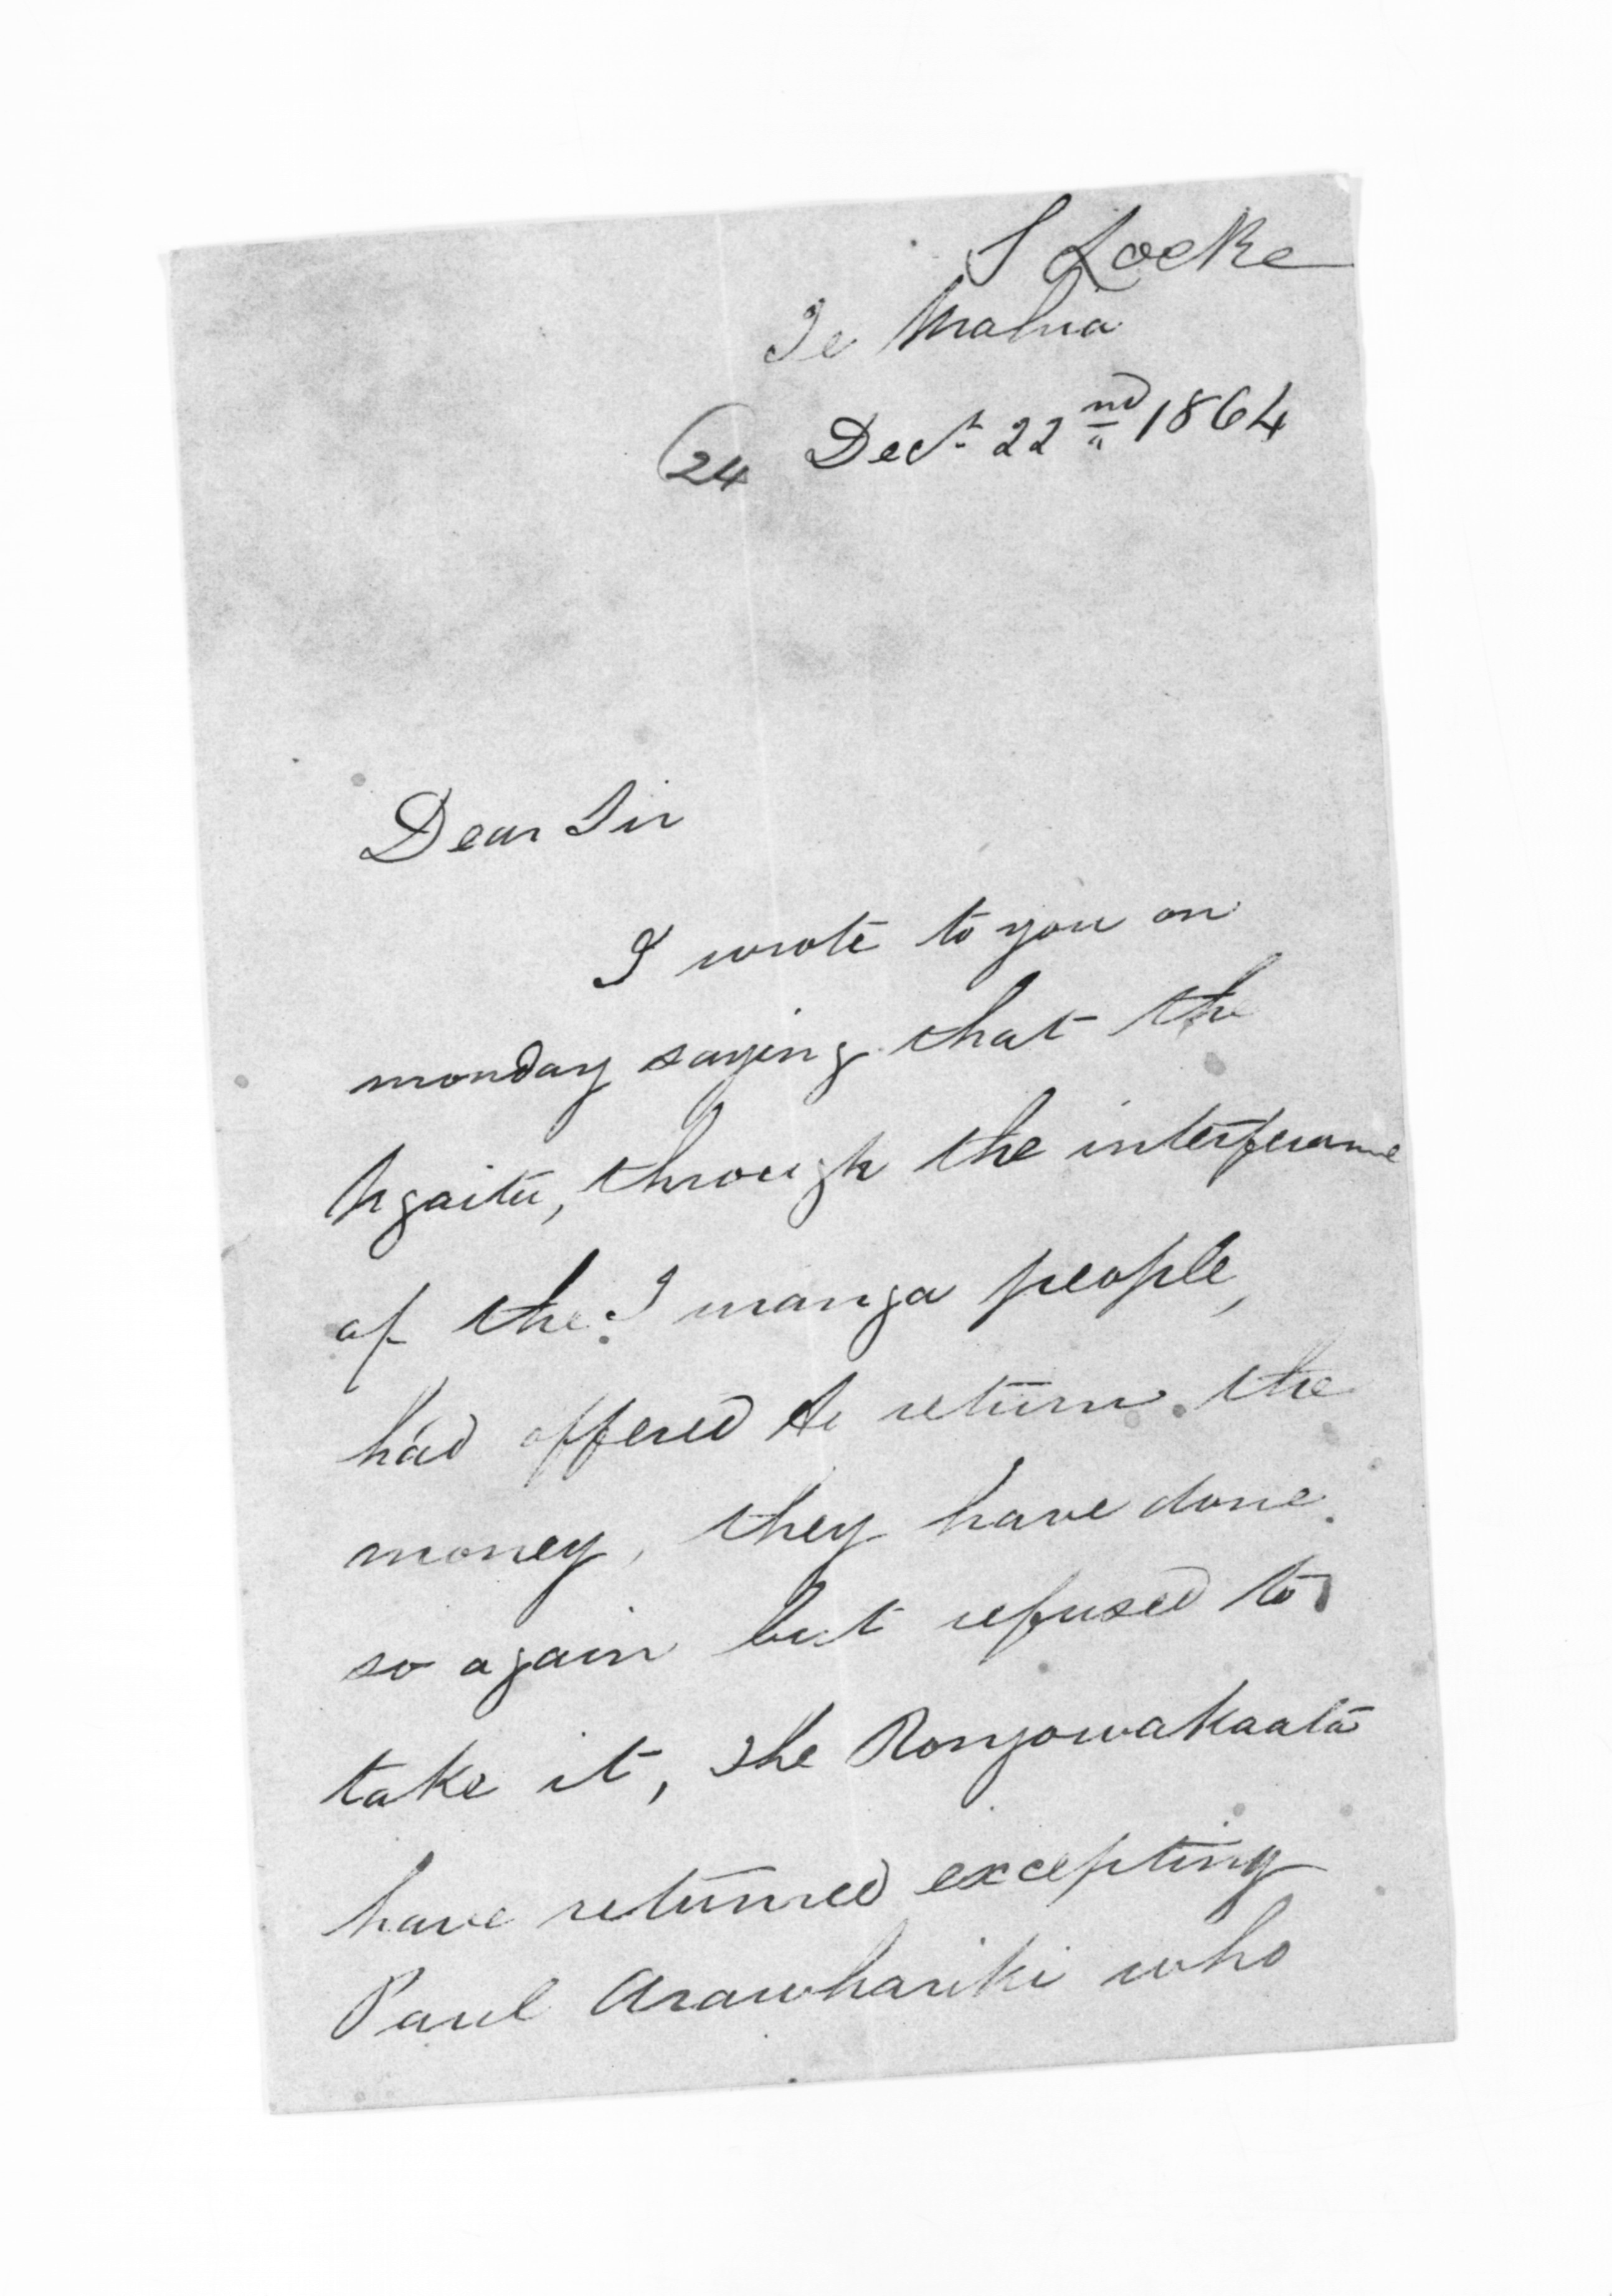 S Locke
Te Mahia
24 Decr 22nd 1864
Dear Sir
I wrote to you on
monday saying that the
Ngaitu, through the interferance
of the Imanga people,
had offered to return the
money, they have done
so again but refused to
take it, The Rongowakaata
have returned excepting
Paul Arawhariki who